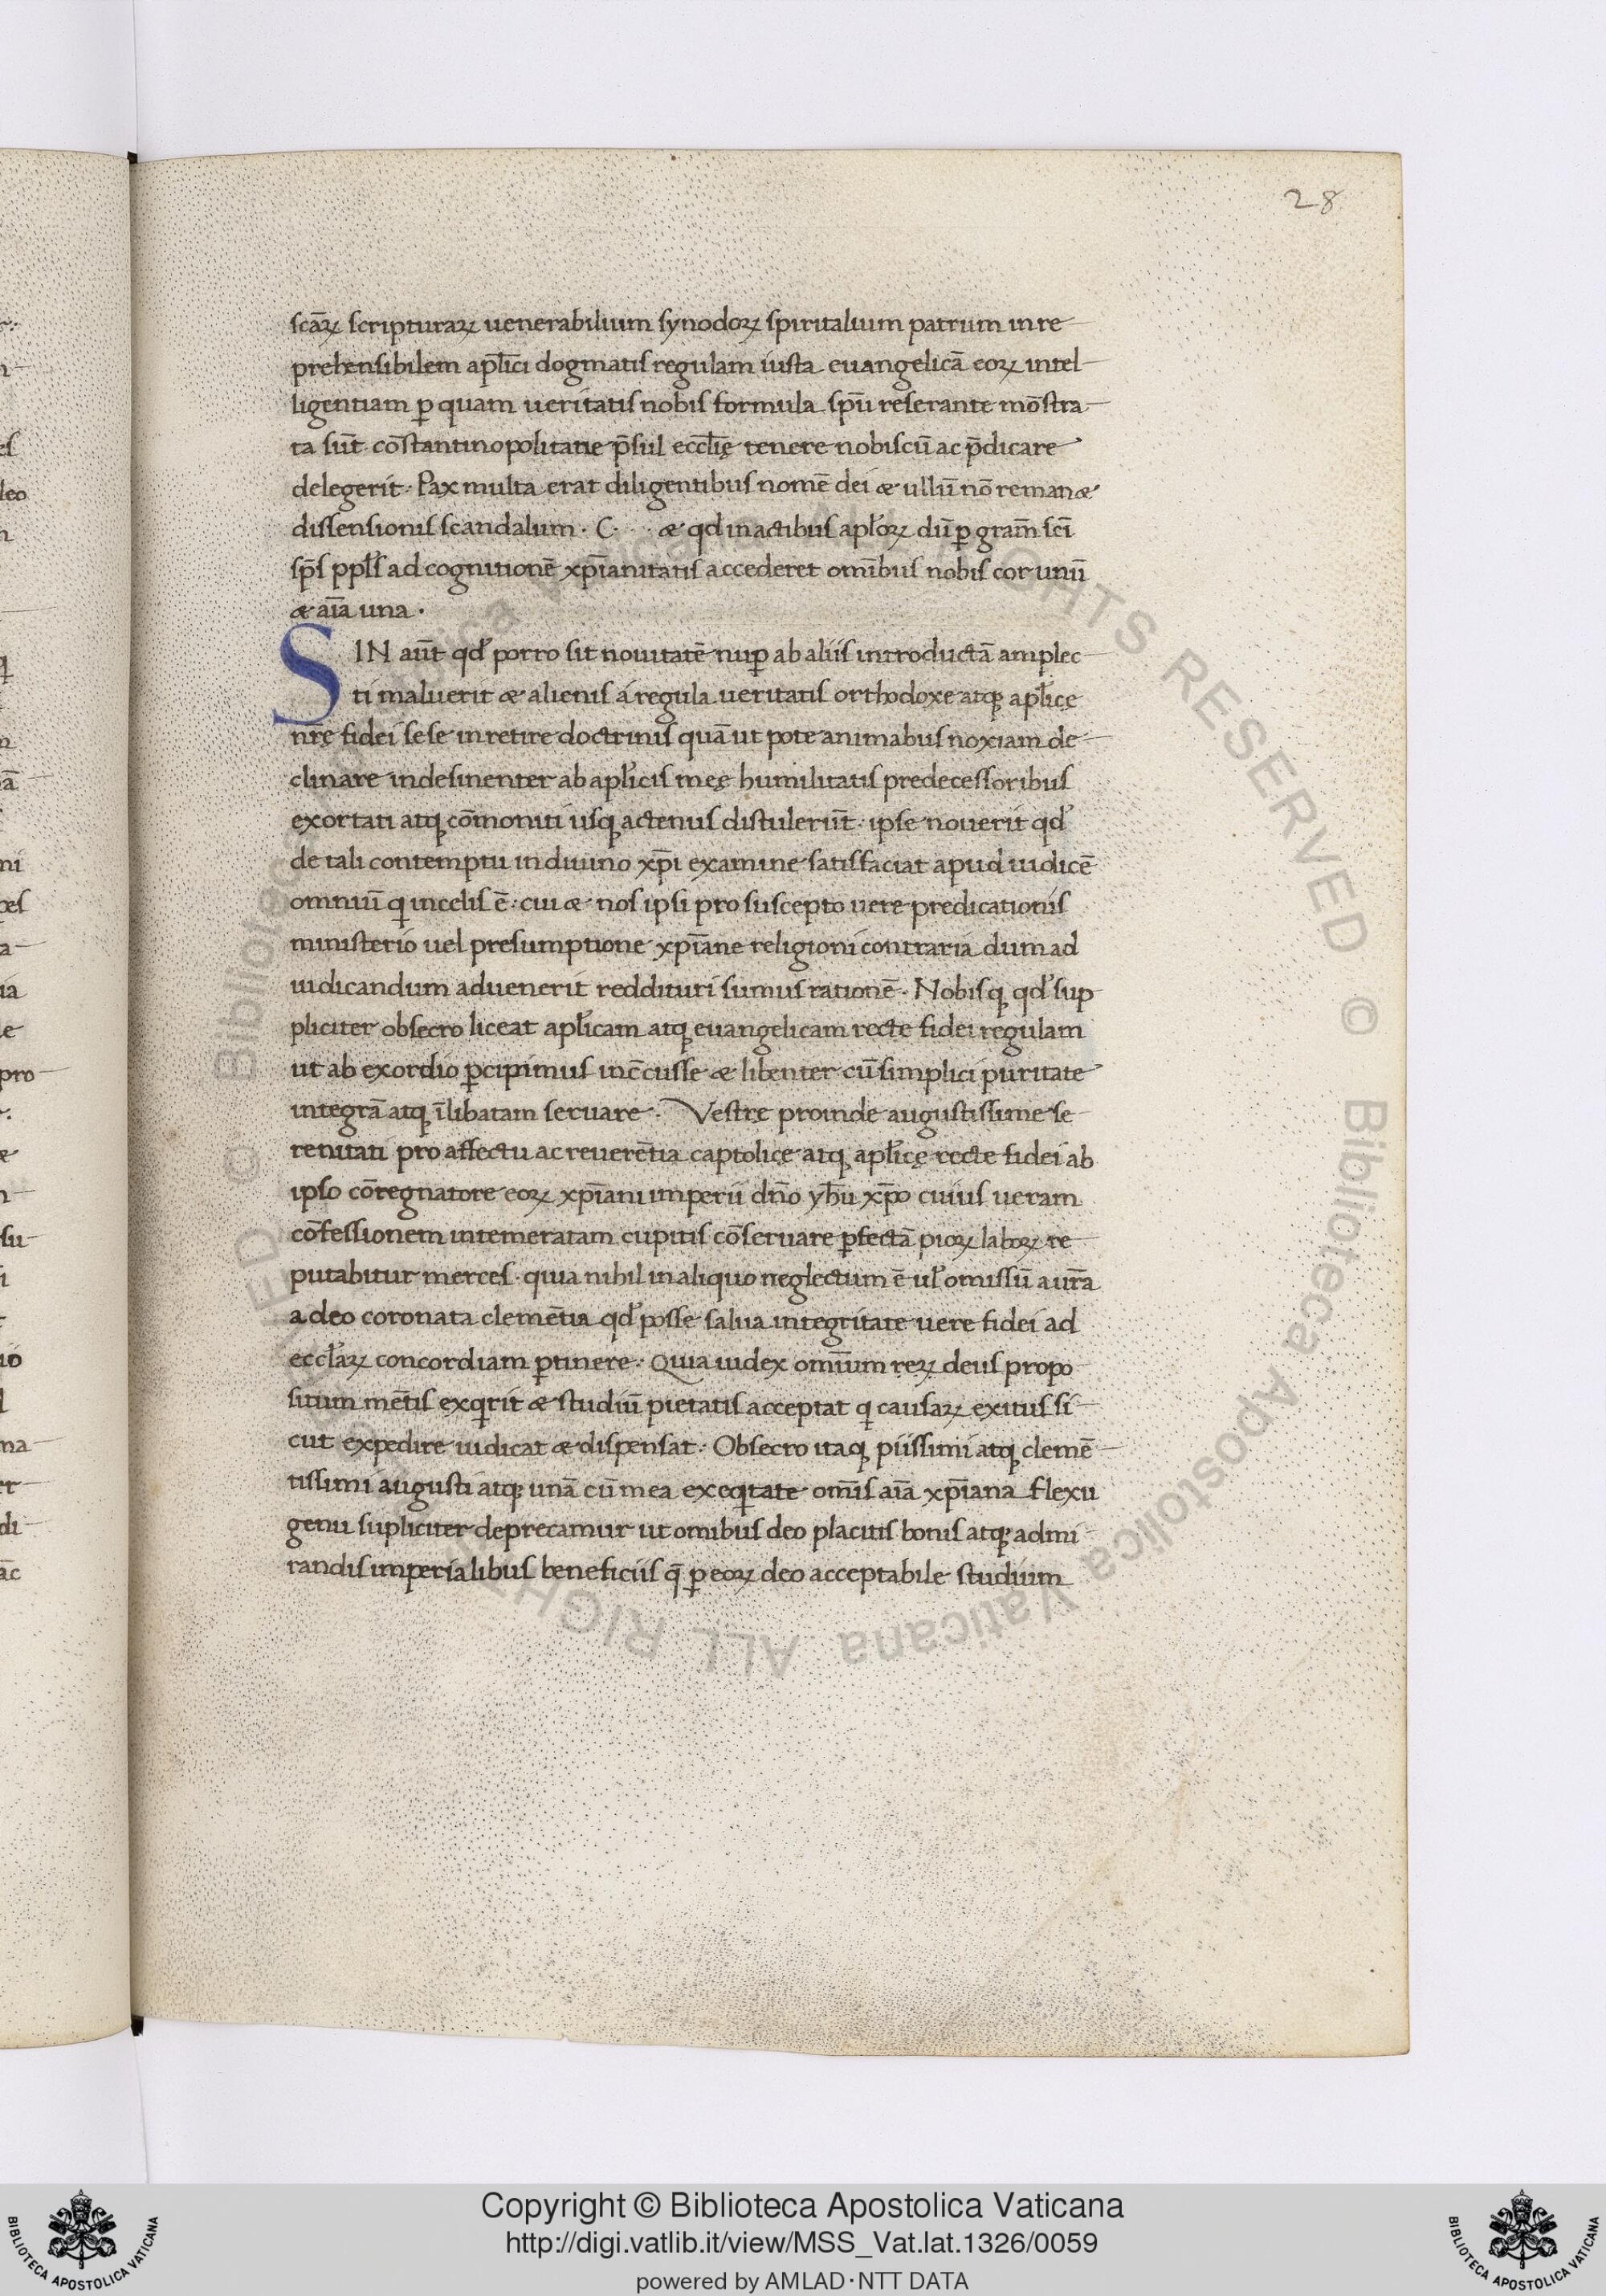 28
scāꝝ scripturaꝝ uenerabilium synodoꝝ spiritalium patrum in re-
prehensibilem apl̄ici dogmatis regulam iusta euangelicā eoꝝ intel-
ligentiam ꝑ quam ueritatis nobis formula sp̄u reserante mōstra-
ta sūt cōstantinopolitane p̄sul eccl̄ię tenere nobiscū ac p̄dicare
delegerit · Pax multa erat diligentibus nomē dei æ ullū nō remanæ
dissensionis scandalum · C · æ qd in actibus apl̄oꝝ dū ꝑ gram̄ sc̄i
sp̄s ppl̄s ad cognitionē xp̄ianitatis accederet om̄ibus nobis cor unū
æ aīa una ·
SIN aūt qd̓ porro sit nouitatē nuꝑ ab aliis introductā amplec-
ti maluerit æ alienis a regula ueritatis orthodoxe atq; apl̄icę
nr̄ę fidei sese inretire doctrinis quā ut pote animabus noxiam de-
clinare indesinenter ab apl̄icis meę humilitatis predecessoribus
exortati atq; cōmoniti usq; actenus distulerūt · ipse nouerit qd̓
de tali contemptu in diuino xp̄i examine satisfaciat apud iudicē
omniū qi in celis ē · cui æ nos ipsi pro suscepto uere predicationis
ministerio uel presumptione xp̄iane religioni contraria dum ad
iudicandum aduenerit reddituri sumus rationē · Nobisq; qd̓ sup
pliciter obsecro liceat apl̄icam atq; euangelicam recte fidei regulam
ut ab exordio ꝑcipimus inc̄cusse æ libenter cū simplici puritate
integrā atq; īlibatam seruare · Vestrę proinde augustissime se-
renitati pro affectu ac reuerētia captolicę atq; apl̄icę recte fidei ab
ipso cōregnatore eoꝝ xp̄iani imperii dn̄o yh̄u xp̄o cuius ueram
cōfessionem intemeratam cupitis cōseruare ꝑfectā pioꝝ laboꝝ re-
putabitur merces · quia nihil in aliquo neglectum ē ul̓ omissū a ur̄a
a deo coronata clemētia qd̓ posse salua integritate uere fidei ad
eccl̄aꝝ concordiam ꝑtinere · Quia iudex om̄ium reꝝ deus propo
situm mētis exqirit æ studiū pietatis acceptat qi causaꝝ exitus si-
cut expedire iudicat æ dispensat · Obsecro itaq; piissimi atq; clemē-
tissimi augusti atq; unā cū mea exeqitate om̄is aīa xp̄iana flexu
genu supliciter deprecamur ut omibus deo placitis bonis atq; admi-
randis imperialibus beneficiis q̄ ꝑ eoꝝ deo acceptabile studium
Copyright © Biblioteca Apostolica Vaticana
http://digi.vatlib.it/view/MSS_Vat.lat.1326/0059
powered by AMLAD·NTT DATA